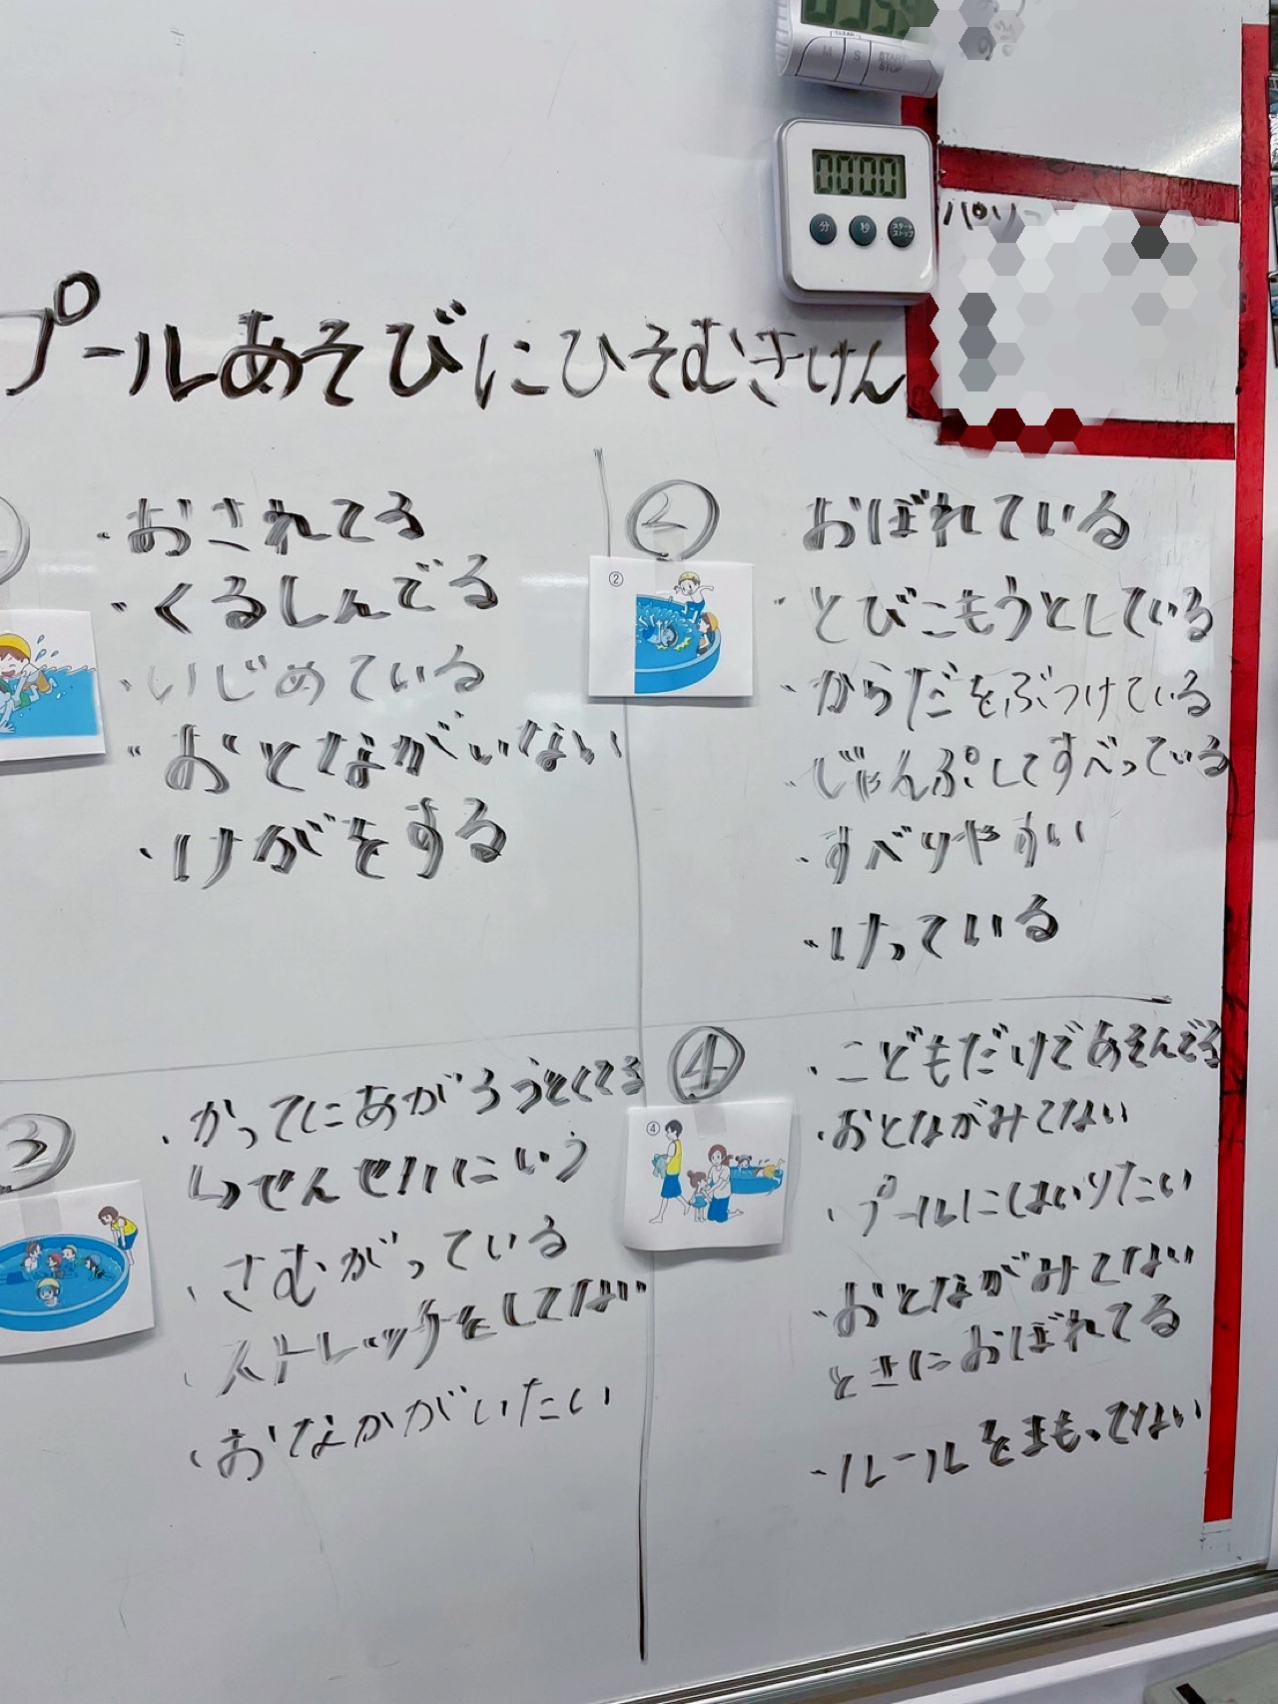 0000
分
秒
スタート
ストップ
M
S
START
STOP
プールあそびにひそむきけん
・おされてる
・くるしんでる
・いじめている
・おとながいない
・けがをする
②
②
おぼれている
・とびこもうとしている
・からだをぶつけている
・じゃんぷしてすべっている
・すべりやすい
・けっている
③
・かってにあがろうとくてる
↳せんせいにいう
・さむがっている
・ストレッチをしてない
・おなかがいたい
④
④
・こどもだけであそんでる
・おとながみてない
・プールにはいりたい
・おとながみてない
ときにおぼれてる
・ルールをまもってない